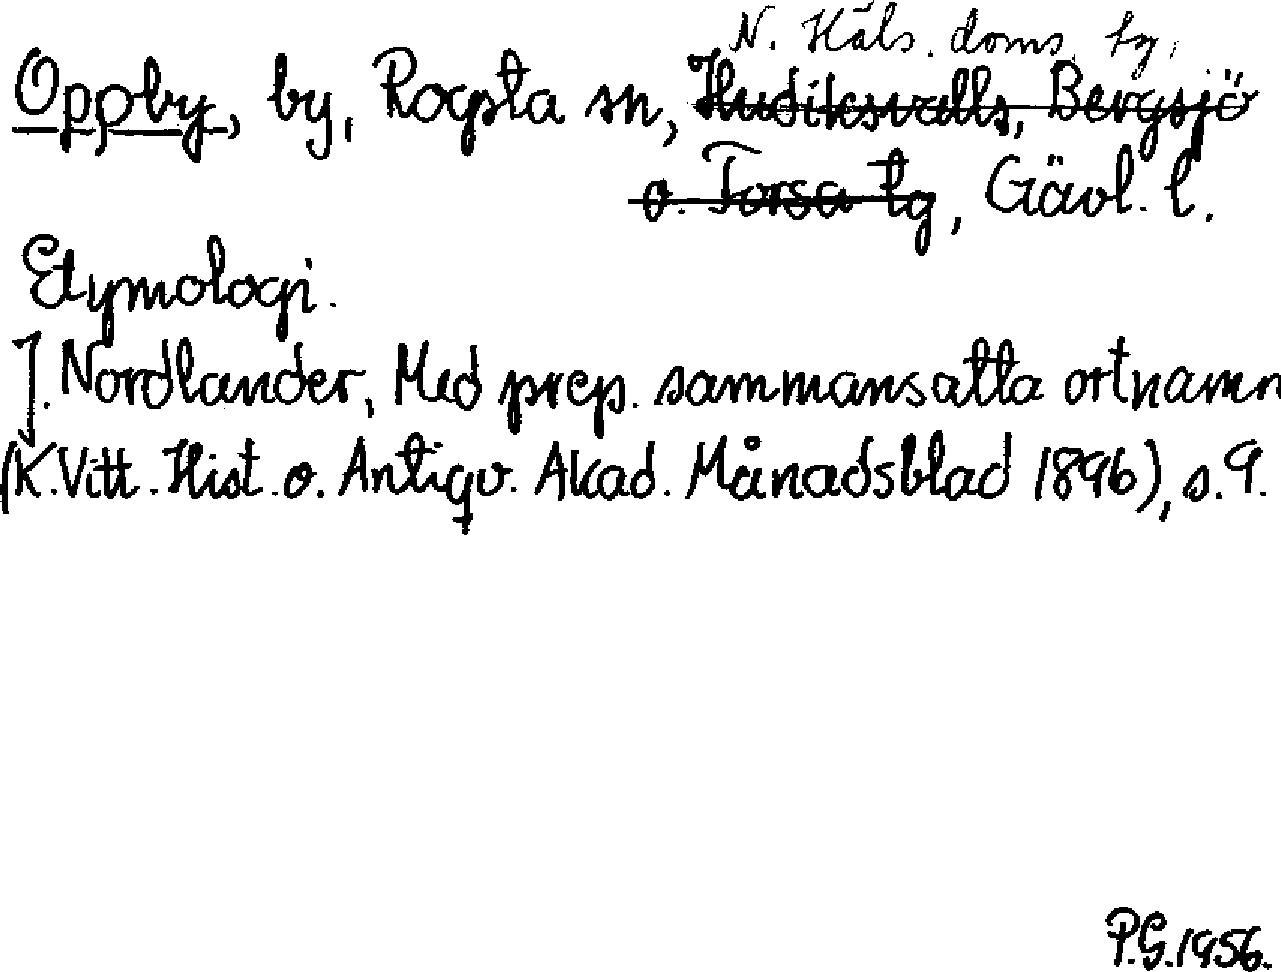 N. Häls. doms. tg,
Oppby, by, Rogsta sn, Hudiksvalls, Bergsjö
o. Forsa tg, Gävl. l.
Etymologi.
J. Nordlander, Med prep. sammansatta ortnamn
(K. Vitt. Hist. o. Antiqv. Akad. Månadsblad 1896), s. 9.
P.G. 1956.